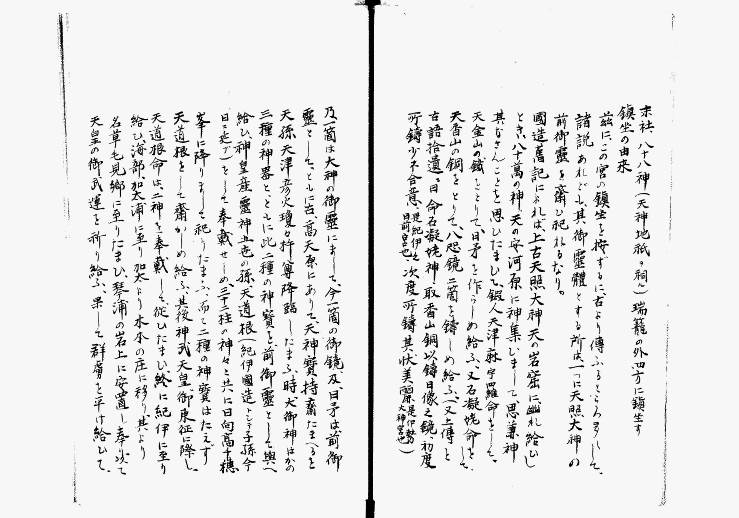 末社、八十八神(天神地祇ノ祠也)瑞籬の外四方に鎮坐す
鎮坐の由来
茲に、この宮の鎮坐を按ずるに古より傳ふるところ多くして、
諸説あれども、其御靈體とする所は一つに天照大神の
前御靈を齋ひ祀れるなり。
國造舊記によれば、上古天照大神天の岩窟に幽れ給ひし
とき、八十萬の神、天の安河原に神集ひまして、思兼神
其なさんことを思ひたまひて、鍛人天津麻宇羅命をして、
天金山の鐵をとりて日矛を作らしめ給ふ、又石凝姥命をして、
天香山の銅をとりて八咫鏡二箇を鋳しめ給ふ、又上傳と
古語拾遺曰、命石凝姥神取香山銅以鋳日像之鏡、初度
所鋳少不合意、是紀伊國日前宮也、次度所鋳其状美麗是伊勢大神宮也)
乃一箇は大神の御靈にまして、今一箇の御鏡及、日矛は前御
靈として、ともに古、高天原にありて天神寶持齋たまへるを
天孫天津彦火瓊々杵尊降臨したまふ時、大御神はかの
三種の神器とともに此二種の神寶を前御靈として與へ
給ひ、神皇産靈神五世の孫天道根(紀伊國造トシテ子孫今
日ニ及ブ)をして奉戴せしめ三十二柱の神々と共に日向高千穂
峯に降りまして祀りたまふ、而て二種の神寶はたえず
天道根をして齋かしめ給ふ、其後神武天皇御東征に際し、
天道根命は、二神を奉戴して從ひたまひ終に紀伊に至り
給ひ海部、加太浦に至り加太より木本の庄に移り其より
名草毛見郷に至りたまひ琴浦の岩上に安置し奉り次て
天皇の御武運を祈り給ふ、果して群虜を平け給ひて、